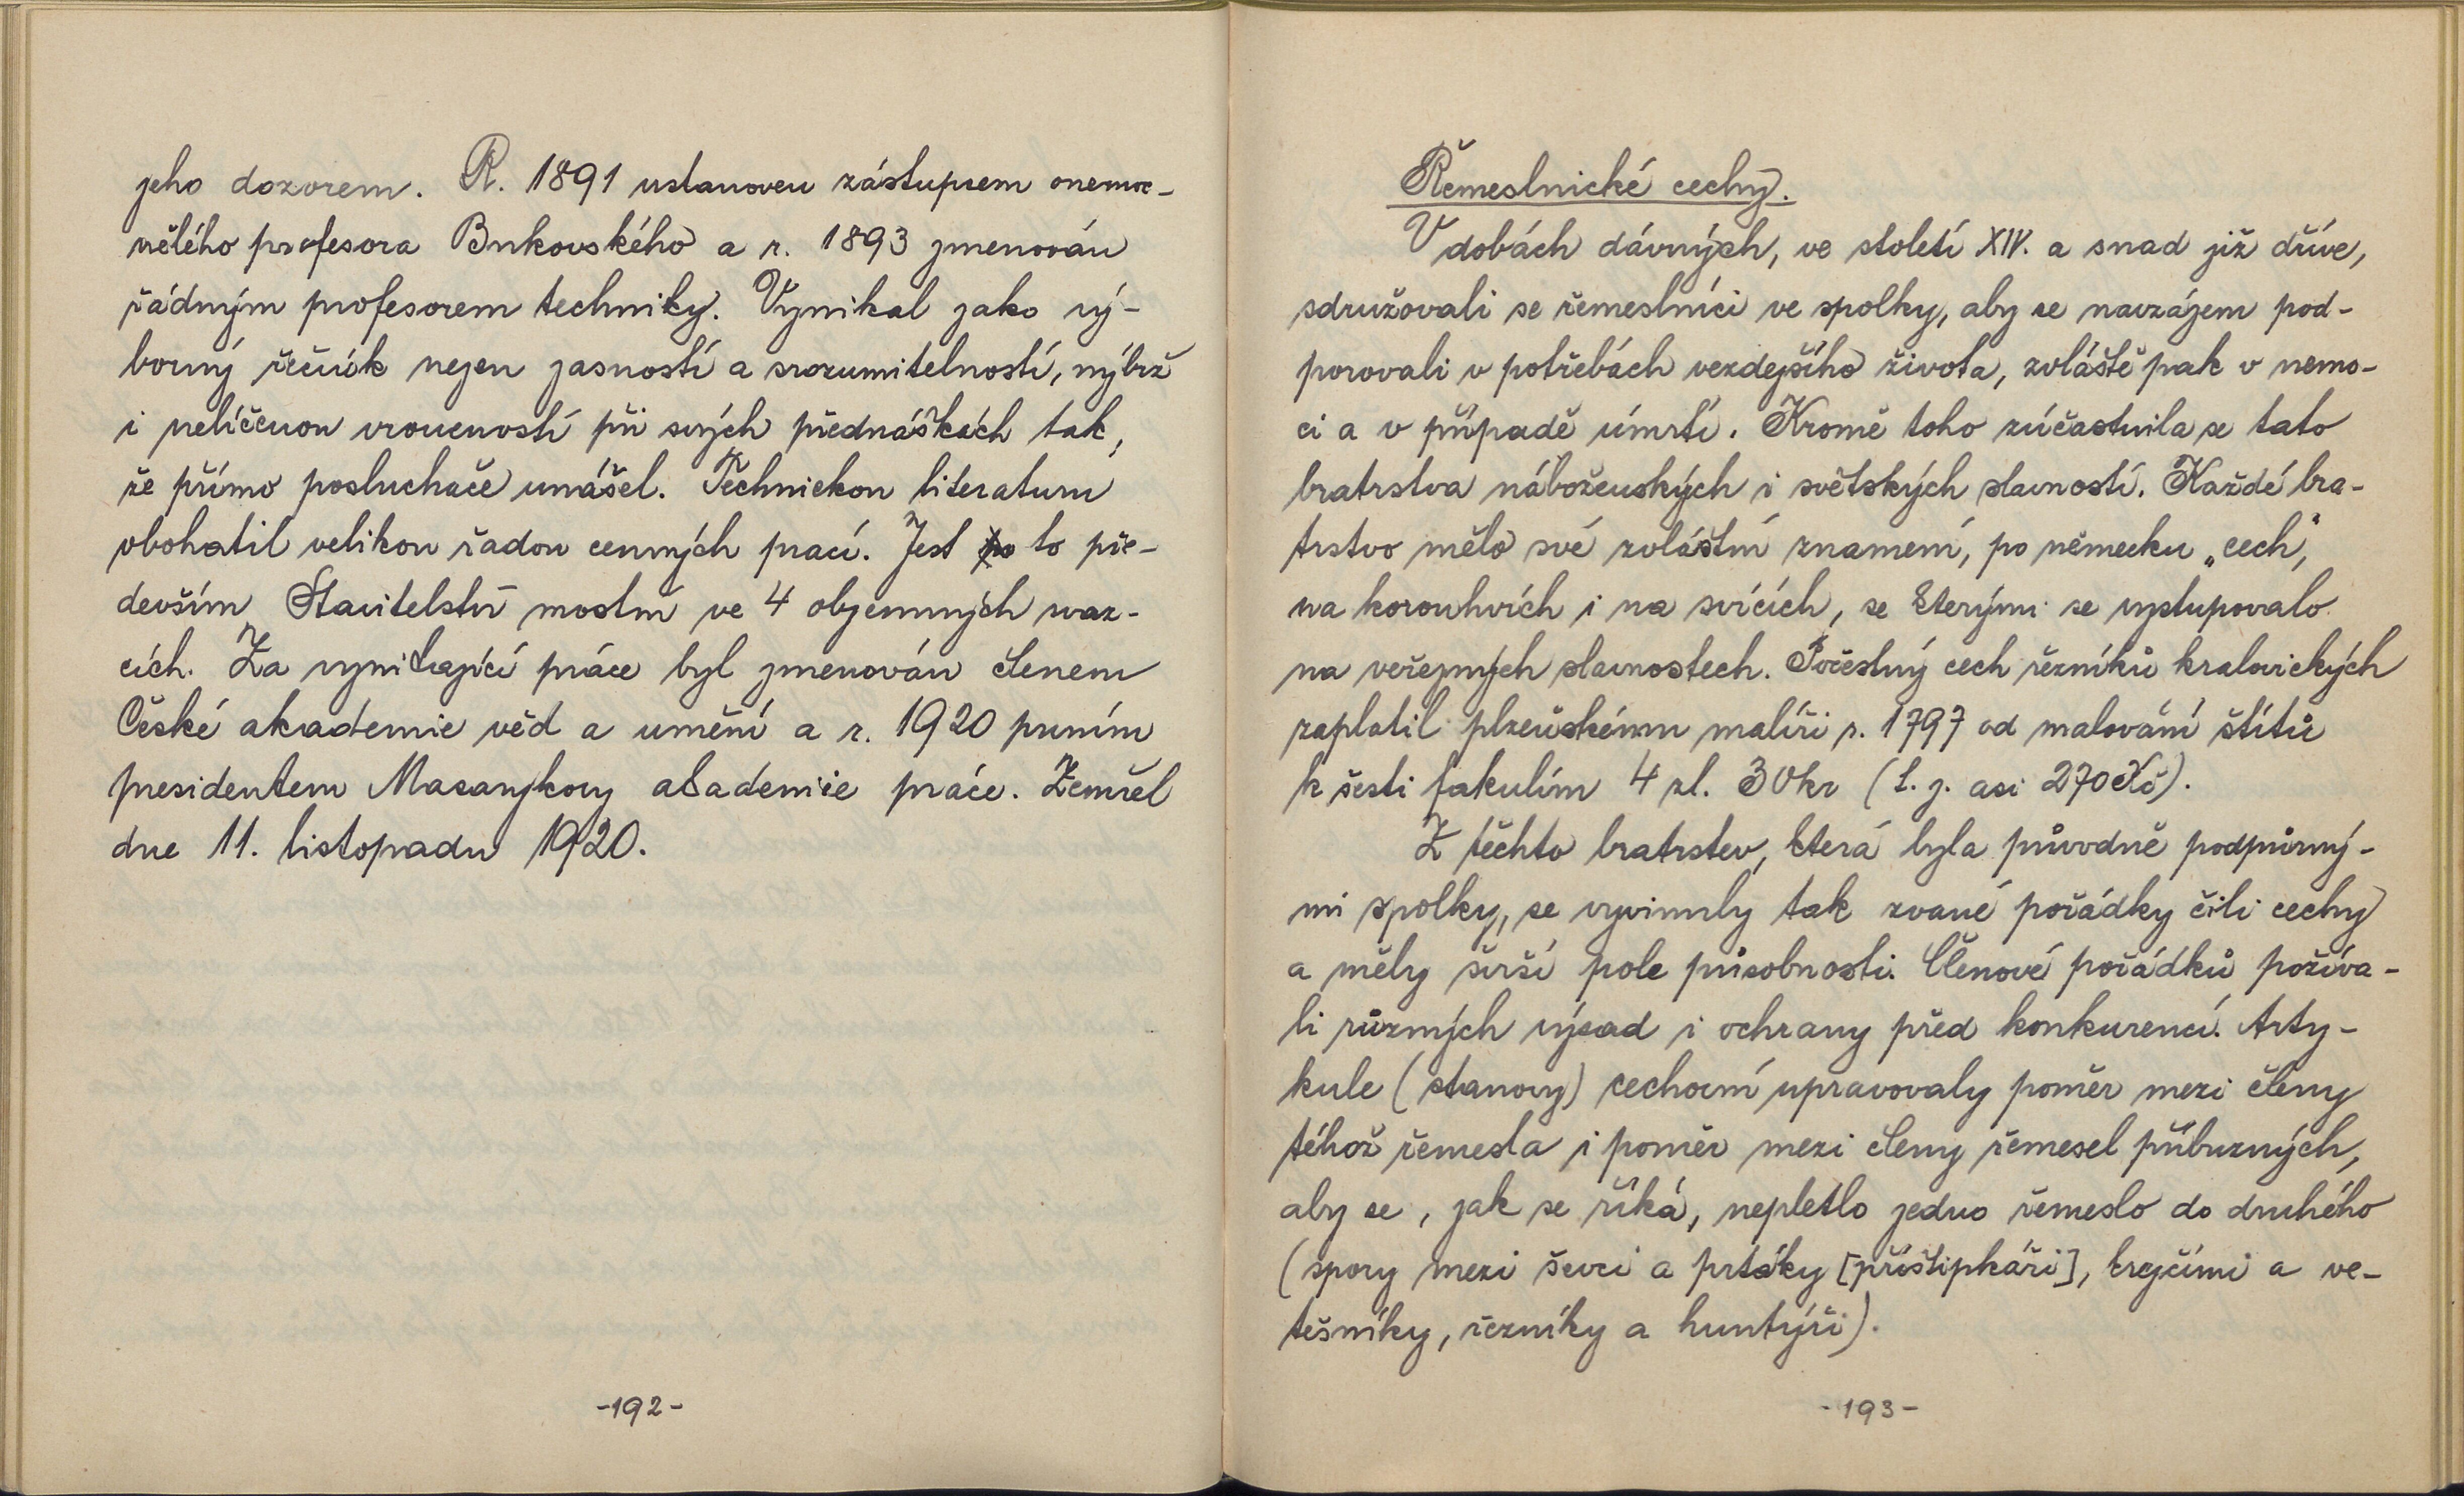 jeho dozorem. R. 1891 ustanoven zástupcem onemoc-
nělého profesora Bukovského a r. 1893 jmenován
řádným profesorem techniky. Vynikal jako vý-
borný řečník nejen jasností a srozumitelností, nýbrž
i nelíčenou vroucností při svých přednáškách tak,
že přímo posluchače unášel. Technickou literaturu
obohatil velikou řadou cenných prací. Jest to pře-
devším Stavitelství mostní ve 4 objemných svaz-
cích. Za vynikající práce byl jmenován členem
České akademie věd a umění a r. 1920 prvním
presidentem Masarykovy akademie práce. Zemřel
dne 11. listopadu 1920.
-192-
Řemeslnické cechy.
V dobách dávných, ve století XIV. a snad již dříve,
sdružovali se řemeslníci ve spolky, aby se navzájem pod-
porovali v potřebách vezdejšího života, zvláště pak v nemo-
ci a v případě úmrtí. Kromě toho zúčastnila se tato
bratrstva náboženských i světských slavností. Každé bra-
trstvo mělo své zvláštní znamení, po německu „cech",
na korouhvích i na svících, se kterými se vystupovalo
na veřejných slavnostech. Počestný cech řezníků kralovických
zaplatil plzeňskému malíři r. 1797 od malování štítů
k šesti fakulím 4 zl. 30kr (t. j. asi 270Kč).
Z těchto bratrstev, která byla původně podpůrný-
mi spolky, se vyvinuly tak zvané pořádky čili cechy
a měly širší pole působnosti. Členové pořádků požíva-
li různých výsad i ochrany před konkurencí. Arty-
kule (stanovy) cechovní upravovaly poměr mezi členy
téhož řemesla i poměr mezi členy řemesel příbuzných,
aby se, jak se říká, nepletlo jedno řemeslo do druhého
(spory mezi ševci a prtáky [příštipkáři], krejčími a ve-
tešníky, řezníky a huntýři).
-193-